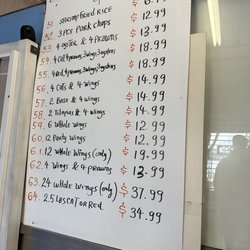 51. SHRIMP FRIED RICE $
52. 3 PCS PORK CHOPS $ 12.99
53. 4 OYSTER & 4 PRAWNS $ 13.99
54. $ 18.99
55. $ 18.99
56. 4 Cats & 4 Wings $ 14.99
57. 2 Basa & 4 wings $ 14.99
58. 2 Tilapias & 4 wings $ 14.99
59. 6 Whole Wings $ 12.99
60. 12 Party Wings $ 12.99
61. 12 Whole Wings (only) $ 19.99
62. 4 Wings & 4 PRAWNS $ 13.99
63. 24 Whole Wings (only) $ 37.99
64. 2.5 LBS CAT OR RED $ 34.99